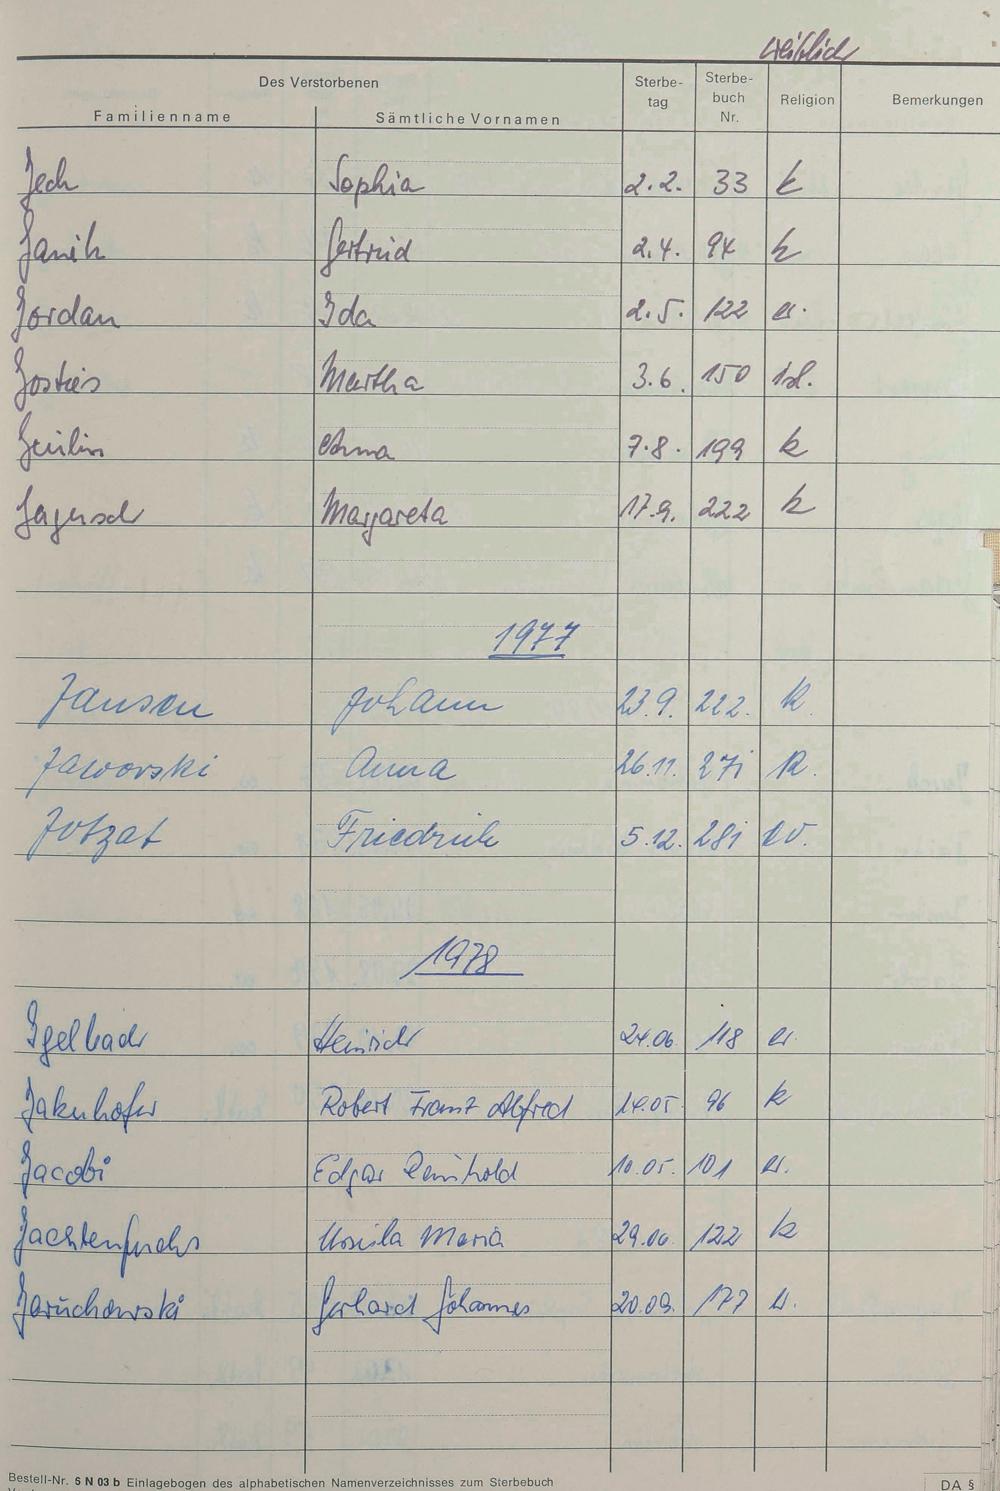 weiblich
Des Verstorbenen Sterbe- Sterbe-
tag buch Religion Bemerkungen
Familienname Sämtliche Vornamen Nr.
Jech Sophia 2.2. 33 k
Janik Gertrud 2.4. 94 k
Jordan Ida 2.5. 122 ev.
Josties Martha 3.6. 150
Anna 7.8. 199 k
Jagusch Margareta 17.9. 222 k
1977
Jansen Johann 23.9. 222. k.
Jaworski Anna 26.11. 271 k.
Jotzat Friedrich 5.12. 281 ev.
1978
Heinrich 24.06 118 ev
Jakuhofer Robert Franz Alfred 14.05 96 k
Jacobi Edgar Reinhold 10.05. 101 ev.
Jachtenfuchs Ursula Maria 29.06 122 k
Jaruchowski Gerhard Johannes 20.09. 177 ev.
Bestell-Nr. 5 N 03 b Einlagebogen des alphabetischen Namenverzeichnisses zum Sterbebuch
DA §